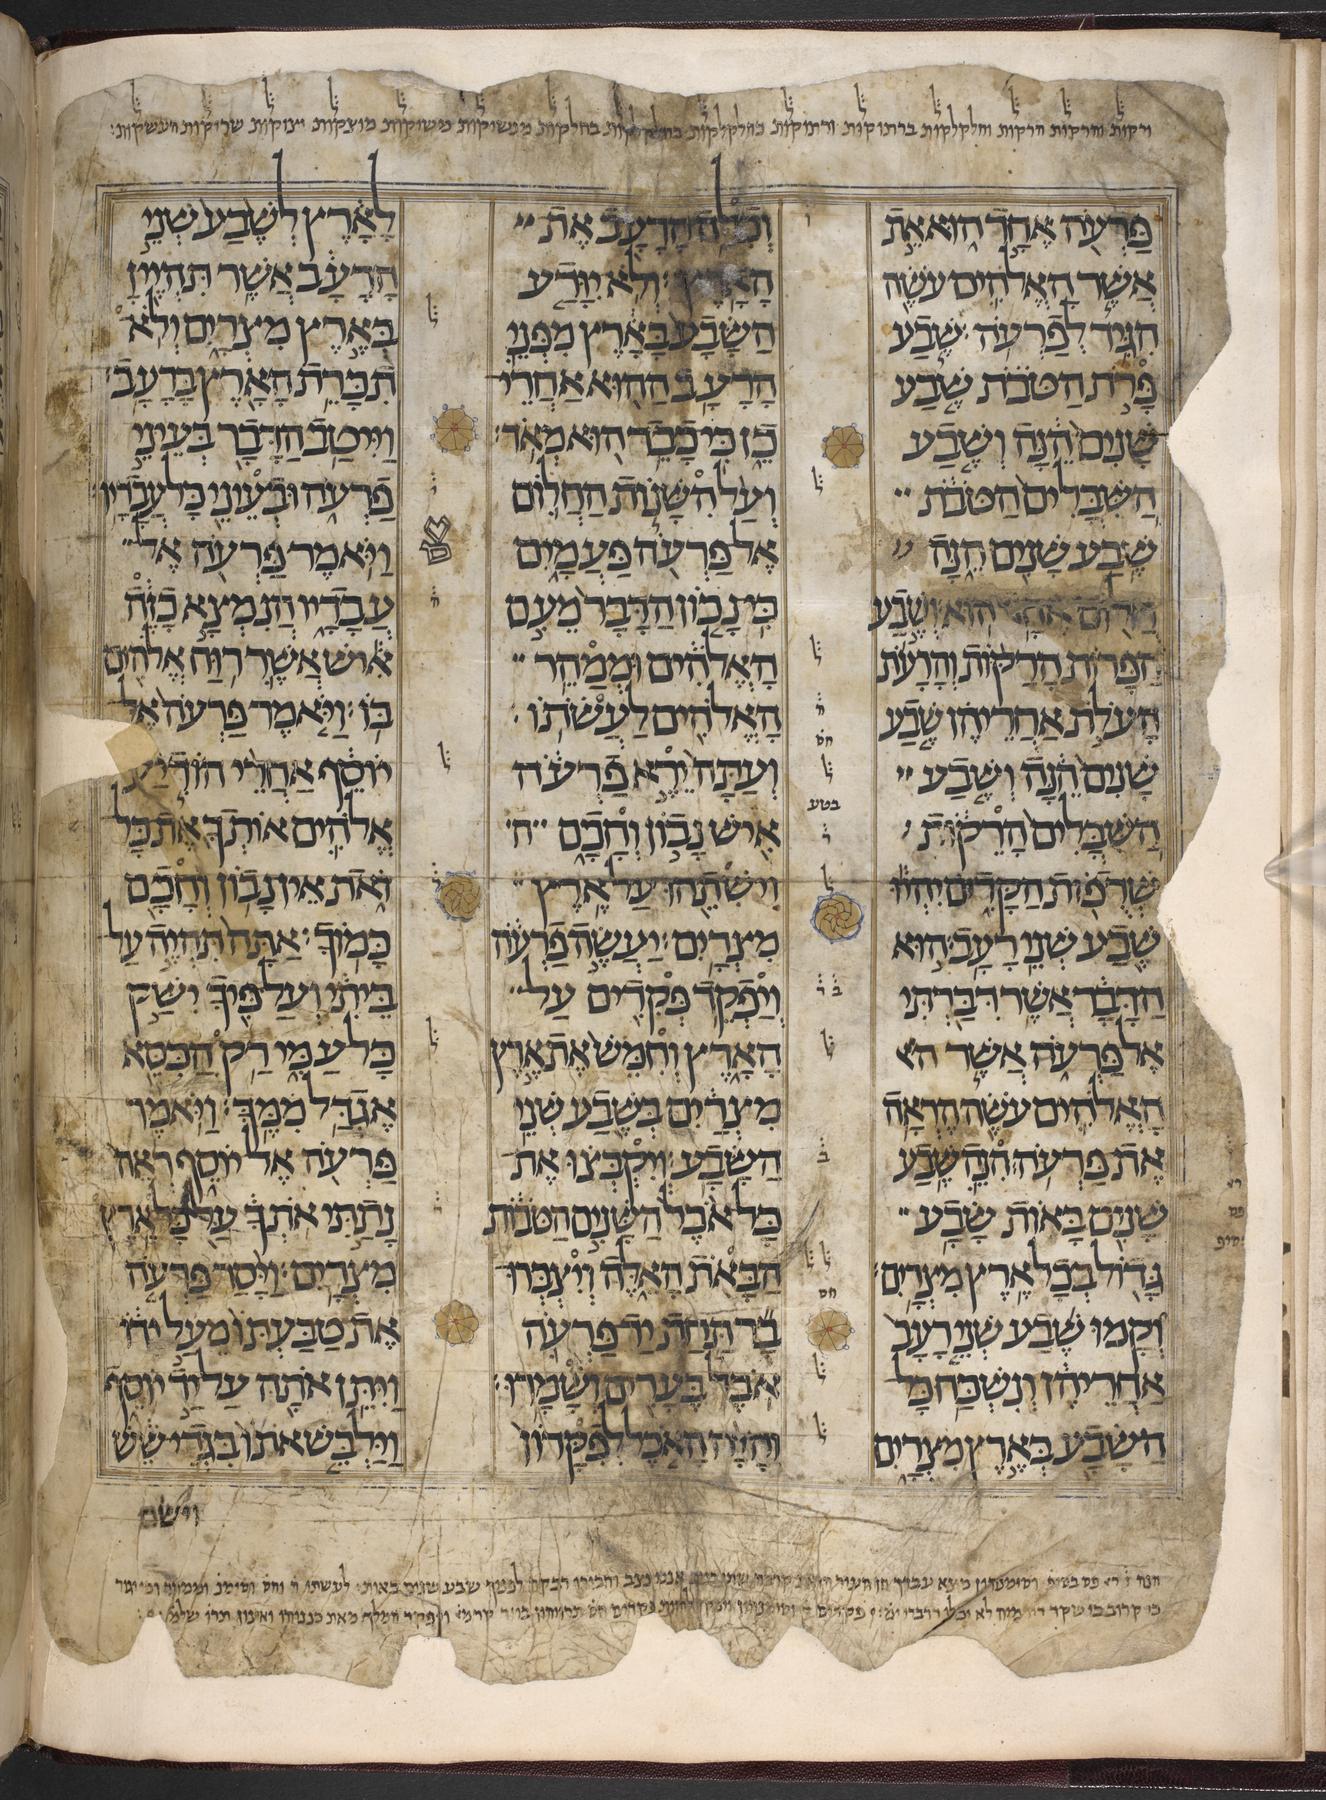 ורקות והרקות הרקות וחלקלקות ברתוקות ורתוקות בחלקלקות בחלקות ממשיקות משיקות מוצקות יונקות שריקות העשקות׃
פַּרְעֹה אֶחָד הוּא אֵת
אֲשֶׁר הָאֱלֹהִים עֹשֶׂה
הִגִּיד לְפַרְעֹה׃ שֶׁבַע
פָּרֹת הַטֹּבֹת שֶׁבַע
שָׁנִים הֵנָּה וְשֶׁבַע
הַשִּׁבֳּלִים הַטֹּבֹת
שֶׁבַע שָׁנִים הֵנָּה
חֲלוֹם אֶחָד הוּא׃ וְשֶׁבַע
הַפָּרוֹת הָרַקּוֹת וְהָרָעֹת
הָעֹלֹת אַחֲרֵיהֶן שֶׁבַע
שָׁנִים הֵנָּה וְשֶׁבַע
הַשִּׁבֳּלִים הָרֵקוֹת
שְׁדֻפוֹת הַקָּדִים יִהְיוּ
שֶׁבַע שְׁנֵי רָעָב׃ הוּא
הַדָּבָר אֲשֶׁר דִּבַּרְתִּי
אֶל פַּרְעֹה אֲשֶׁר
הָאֱלֹהִים עֹשֶׂה הֶרְאָה
אֶת פַּרְעֹה׃ הִנֵּה שֶׁבַע
שָׁנִים בָּאוֹת שָׂבָע
גָּדוֹל בְּכָל אֶרֶץ מִצְרָיִם׃
וְקָמוּ שֶׁבַע שְׁנֵי רָעָב
אַחֲרֵיהֶן וְנִשְׁכַּח כָּל
הַשָּׂבָע בְּאֶרֶץ מִצְרָיִם
וְכִלָּה הָרָעָב אֶת
הָאָרֶץ׃ וְלֹא יִוָּדַע
הַשָּׂבָע בָּאָרֶץ מִפְּנֵי
הָרָעָב הַהוּא אַחֲרֵי
כֵן כִּי כָבֵד הוּא מְאֹד׃
וְעַל הִשָּׁנוֹת הַחֲלוֹם
אֶל פַּרְעֹה פַּעֲמָיִם
כִּי נָכוֹן הַדָּבָר מֵעִם
הָאֱלֹהִים וּמְמַהֵר
הָאֱלֹהִים לַעֲשֹׂתוֹ׃
וְעַתָּה יֵרֶא פַרְעֹה
אִישׁ נָבוֹן וְחָכָם
וִישִׁתֵהוּ עַל אֶרֶץ
מִצְרָיִם׃ יַעֲשֶׂה פַרְעֹה
וְיַפְקֵד פְּקִדִים עַל
הָאָרֶץ וְחִמֵּשׁ אֶת אֶרֶץ
מִצְרַיִם בְּשֶׁבַע שְׁנֵי
הַשָּׂבָע׃ וְיִקְבְּצוּ אֶת
כָּל אֹכֶל הַשָּׁנִים הַטֹּבוֹת
הַבָּאֹת הָאֵלֶּה וְיִצְבְּרוּ
בָר תַּחַת יַד פַּרְעֹה
אֹכֶל בֶּעָרִים וְשָׁמָרוּ׃
וְהָיָה הָאֹכֶל לְפִקָּדוֹן
לָאָרֶץ לְשֶׁבַע שְׁנֵי
הָרָעָב אֲשֶׁר תִּהְיֶיןָ
בְּאֶרֶץ מִצְרָיִם וְלֹא
תִכָּרֵת הָאָרֶץ בָּרָעָב׃
וַיִּיטַב הַדָּבָר בְּעֵינֵי
פַרְעֹה וּבְעֵינֵי כָּל עֲבָדָיו׃
וַיֹּאמֶר פַּרְעֹה אֶל
עֲבָדָיו הֲנִמְצָא כָזֶה
אִישׁ אֲשֶׁר רוּחַ אֱלֹהִים
בּוֹ׃ וַיֹּאמֶר פַּרְעֹה אֶל
יוֹסֵף אַחֲרֵי הוֹדִיעַ
אֱלֹהִים אוֹתְךָ אֶת כָּל
זֹאת אֵין נָבוֹן וְחָכָם
כָּמוֹךָ׃ אַתָּה תִּהְיֶה עַל
בֵּיתִי וְעַל פִּיךָ יִשַּׁק
כָּל עַמִּי רַק הַכִּסֵּא
אֶגְדַּל מִמֶּךָּ׃ וַיֹּאמֶר
פַּרְעֹה אֶל יוֹסֵף רְאֵה
נָתַתִּי אֹתְךָ עַל כָּל אֶרֶץ
מִצְרָיִם׃ וַיָּסַר פַּרְעֹה
אֶת טַבַּעְתּוֹ מֵעַל יָדוֹ
וַיִּתֵּן אֹתָהּ עַל יַד יוֹסֵף
וַיַּלְבֵּשׁ אֹתוֹ בִּגְדֵי שֵׁשׁ
וישם